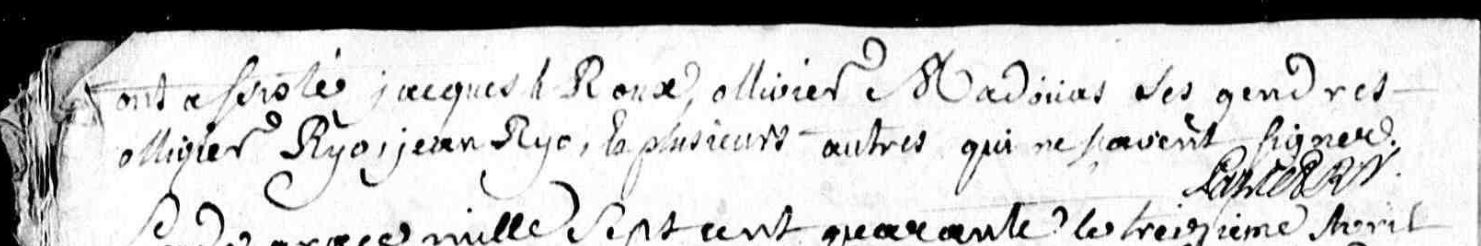 ont assisté jacques le Roux, ollivier Madouas ses gendres
ollivier Ryo, jean Ryo, & plusieurs autres qui ne scavent signer.
L'an de grace mille sept cent quarante le treizieme Avril